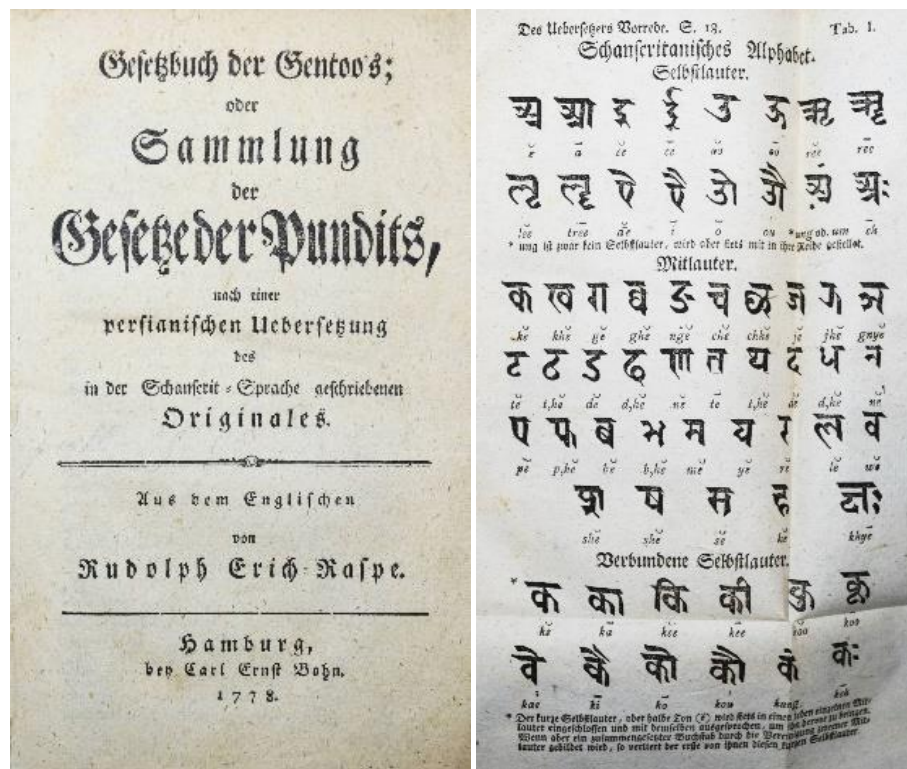 Gesetzbuch der Gentoo's;
oder
Sammlung
der
Gesetze der Pundits,
nach einer
persianischen Uebersetzung
des
in der Schanscrit-Sprache geschriebenen
Originales.
Aus dem Englischen
von
Rudolph Erich Raspe.
Hamburg,
bey Carl Ernst Bohn.
1778.
Des Uebersetzers Vorrede. S. 18. Tab. I.
Schanscritanisches Alphabet.
Selbstlauter.
अ आ इ ई उ ऊ ऋ ॠ
ऌ ॡ ऐ ओ औ अं अः
* ung ist zwar kein Selbstlauter, wird aber stets mit in ihre Reihe gestellet.
Mitlauter.
क ख ग घ ङ च छ ज झ ञ
kĕ khĕ gĕ ghĕ ngĕ chĕ chhĕ jĕ jhĕ gnyĕ
ट ठ ड ढ ण त द ध न
tĕ t,hĕ dĕ d,hĕ nĕ tĕ t,hĕ dĕ d,hĕ nĕ
प फ ब भ म य र ल व
pĕ p,hĕ bĕ b,hĕ mĕ yĕ rĕ lĕ wĕ
श ष स ह
shĕ shĕ sĕ hĕ khyĕ
Verbundene Selbstlauter.
* क का कि की कु कू
kĕ kā kĕĕ kēē koo
के कै को कौ कं कः
kae ki ko kou kung keh
* Der kurze Selbstlauter, oder halbe Ton (ĕ) wird stets in einen jeden einzelnen Mit-
lauter eingeschlossen und mit demselben ausgesprochen, um ihn hervor zu bringen.
Wenn aber ein zusammengesetzter Buchstab durch die Vereinigung zweener Mit-
lauter gebildet wird, so verliert der erste von ihnen diesen kurzen Selbstlauter.